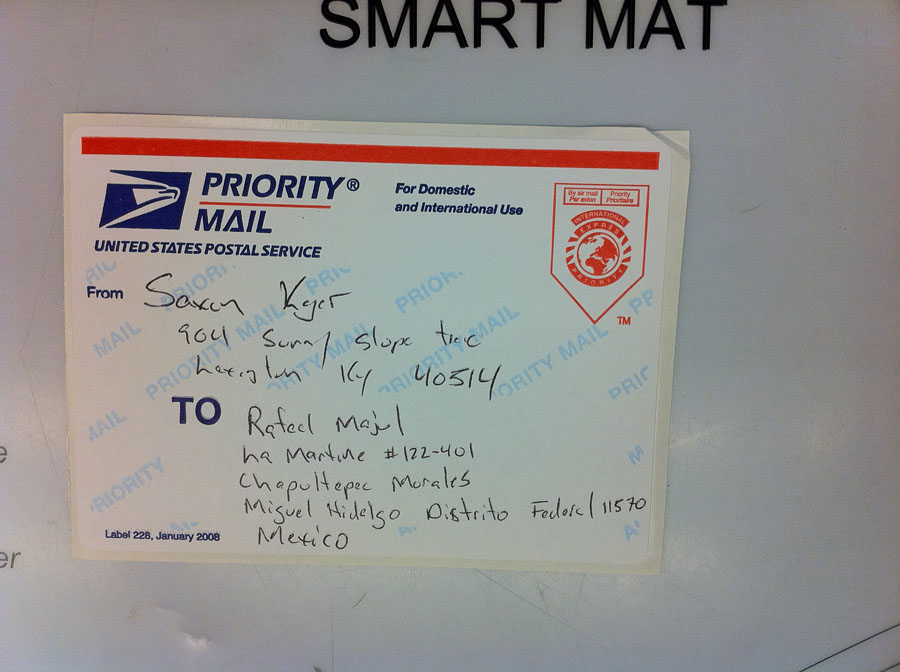 SMART MAT
PRIORITY®
MAIL
UNITED STATES POSTAL SERVICE
For Domestic
and International Use
By air mail
Par avion
Priority
Prioritaire
INTERNATIONAL
EXPRES
PRIORITY
TM
From
904 Sunny Slope trce
Lexington Ky 40514
TO
Rafael Majul
La Martine #122-401
Chapultepec Morales
Miguel Hidalgo Distrito Federal 11570
Mexico
Label 228, January 2008